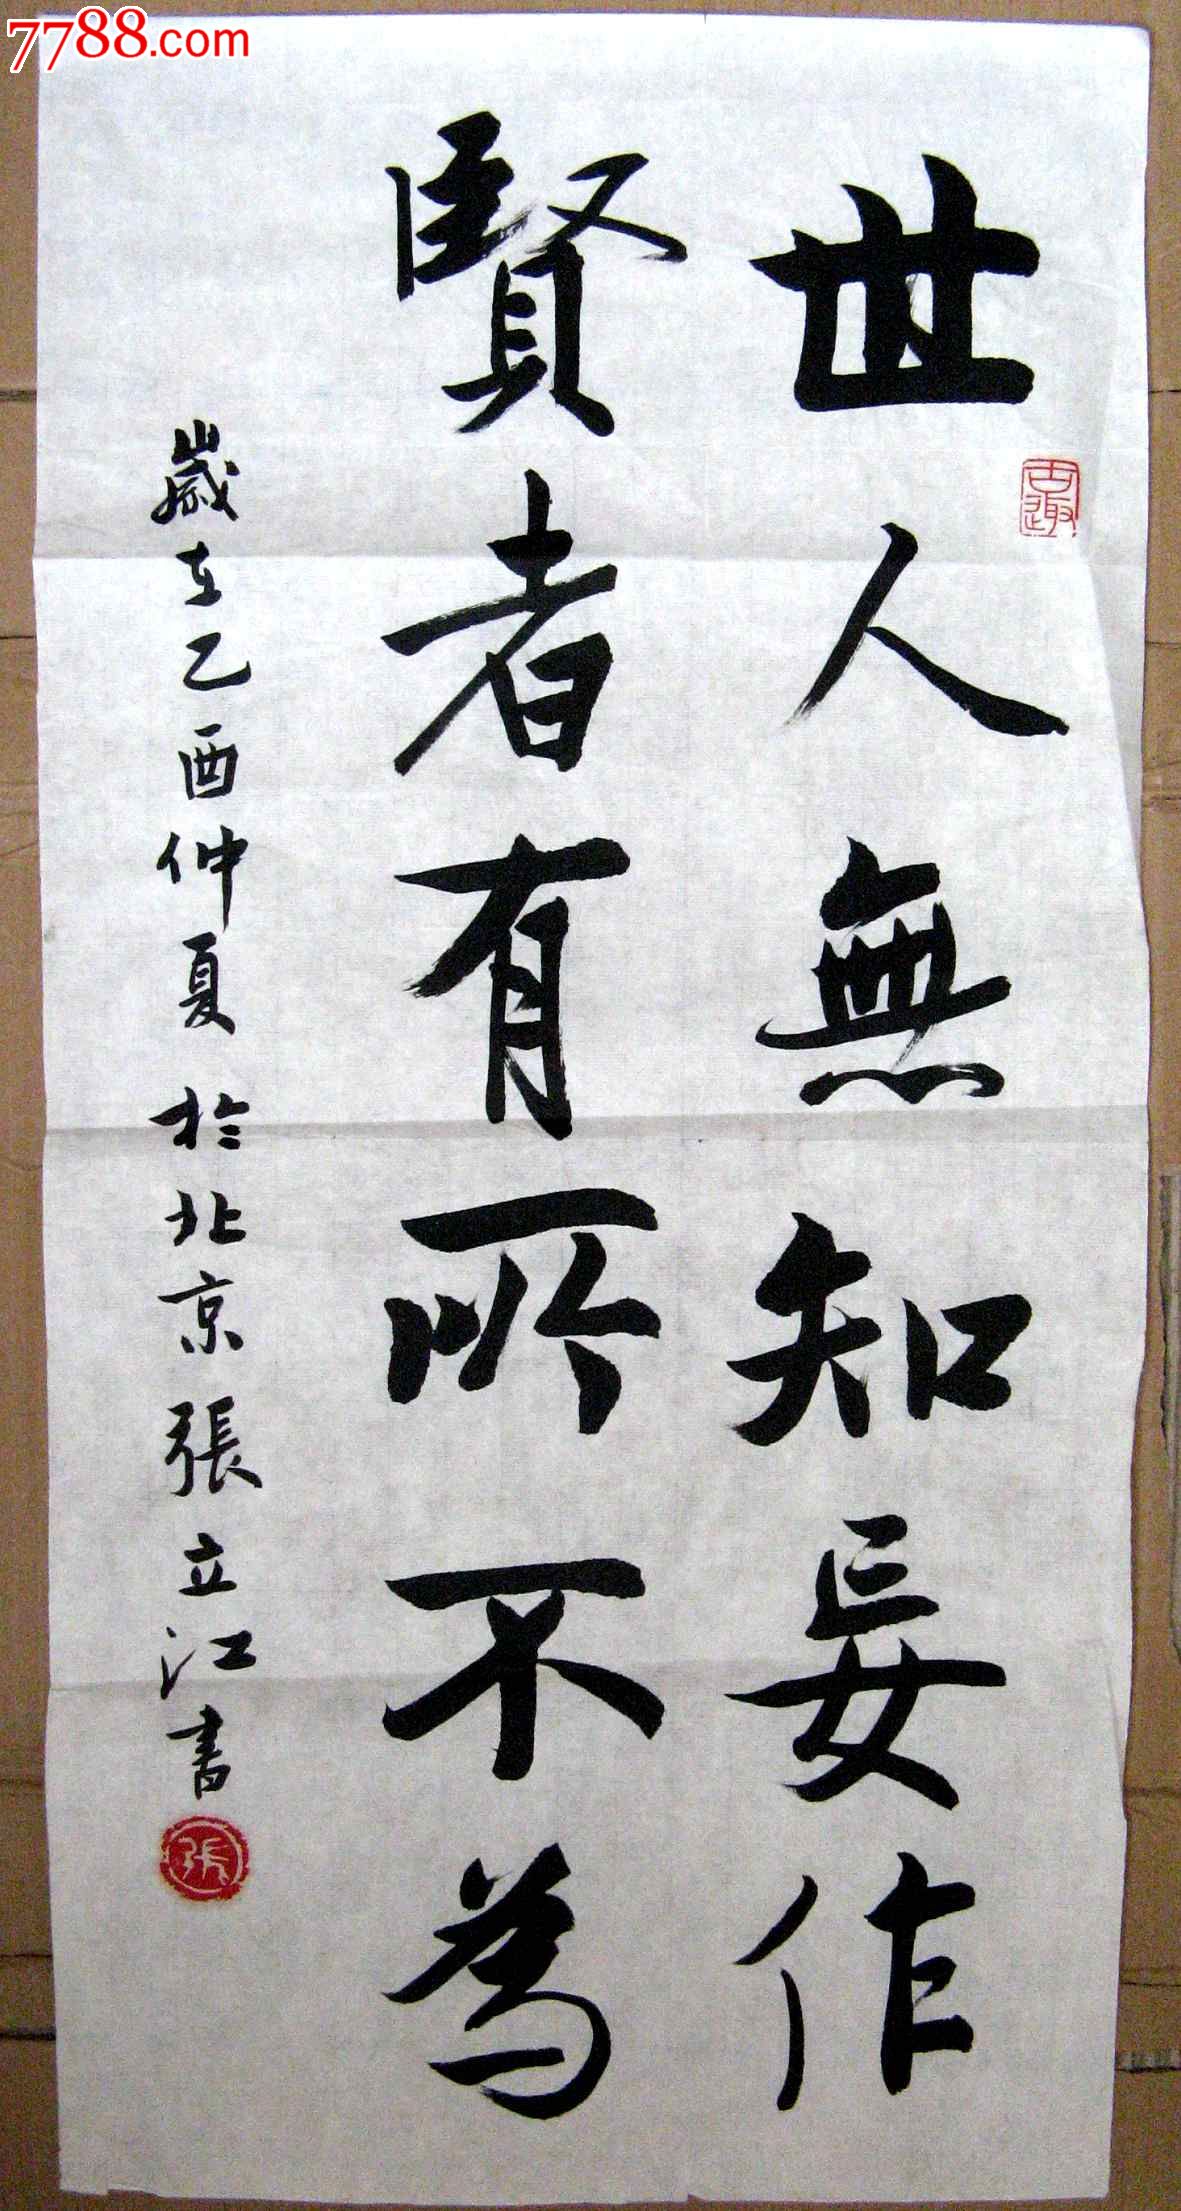 7788.com
世人無知妄作
古趣
賢者有所不為
歲在乙酉仲夏於北京張立江書
張